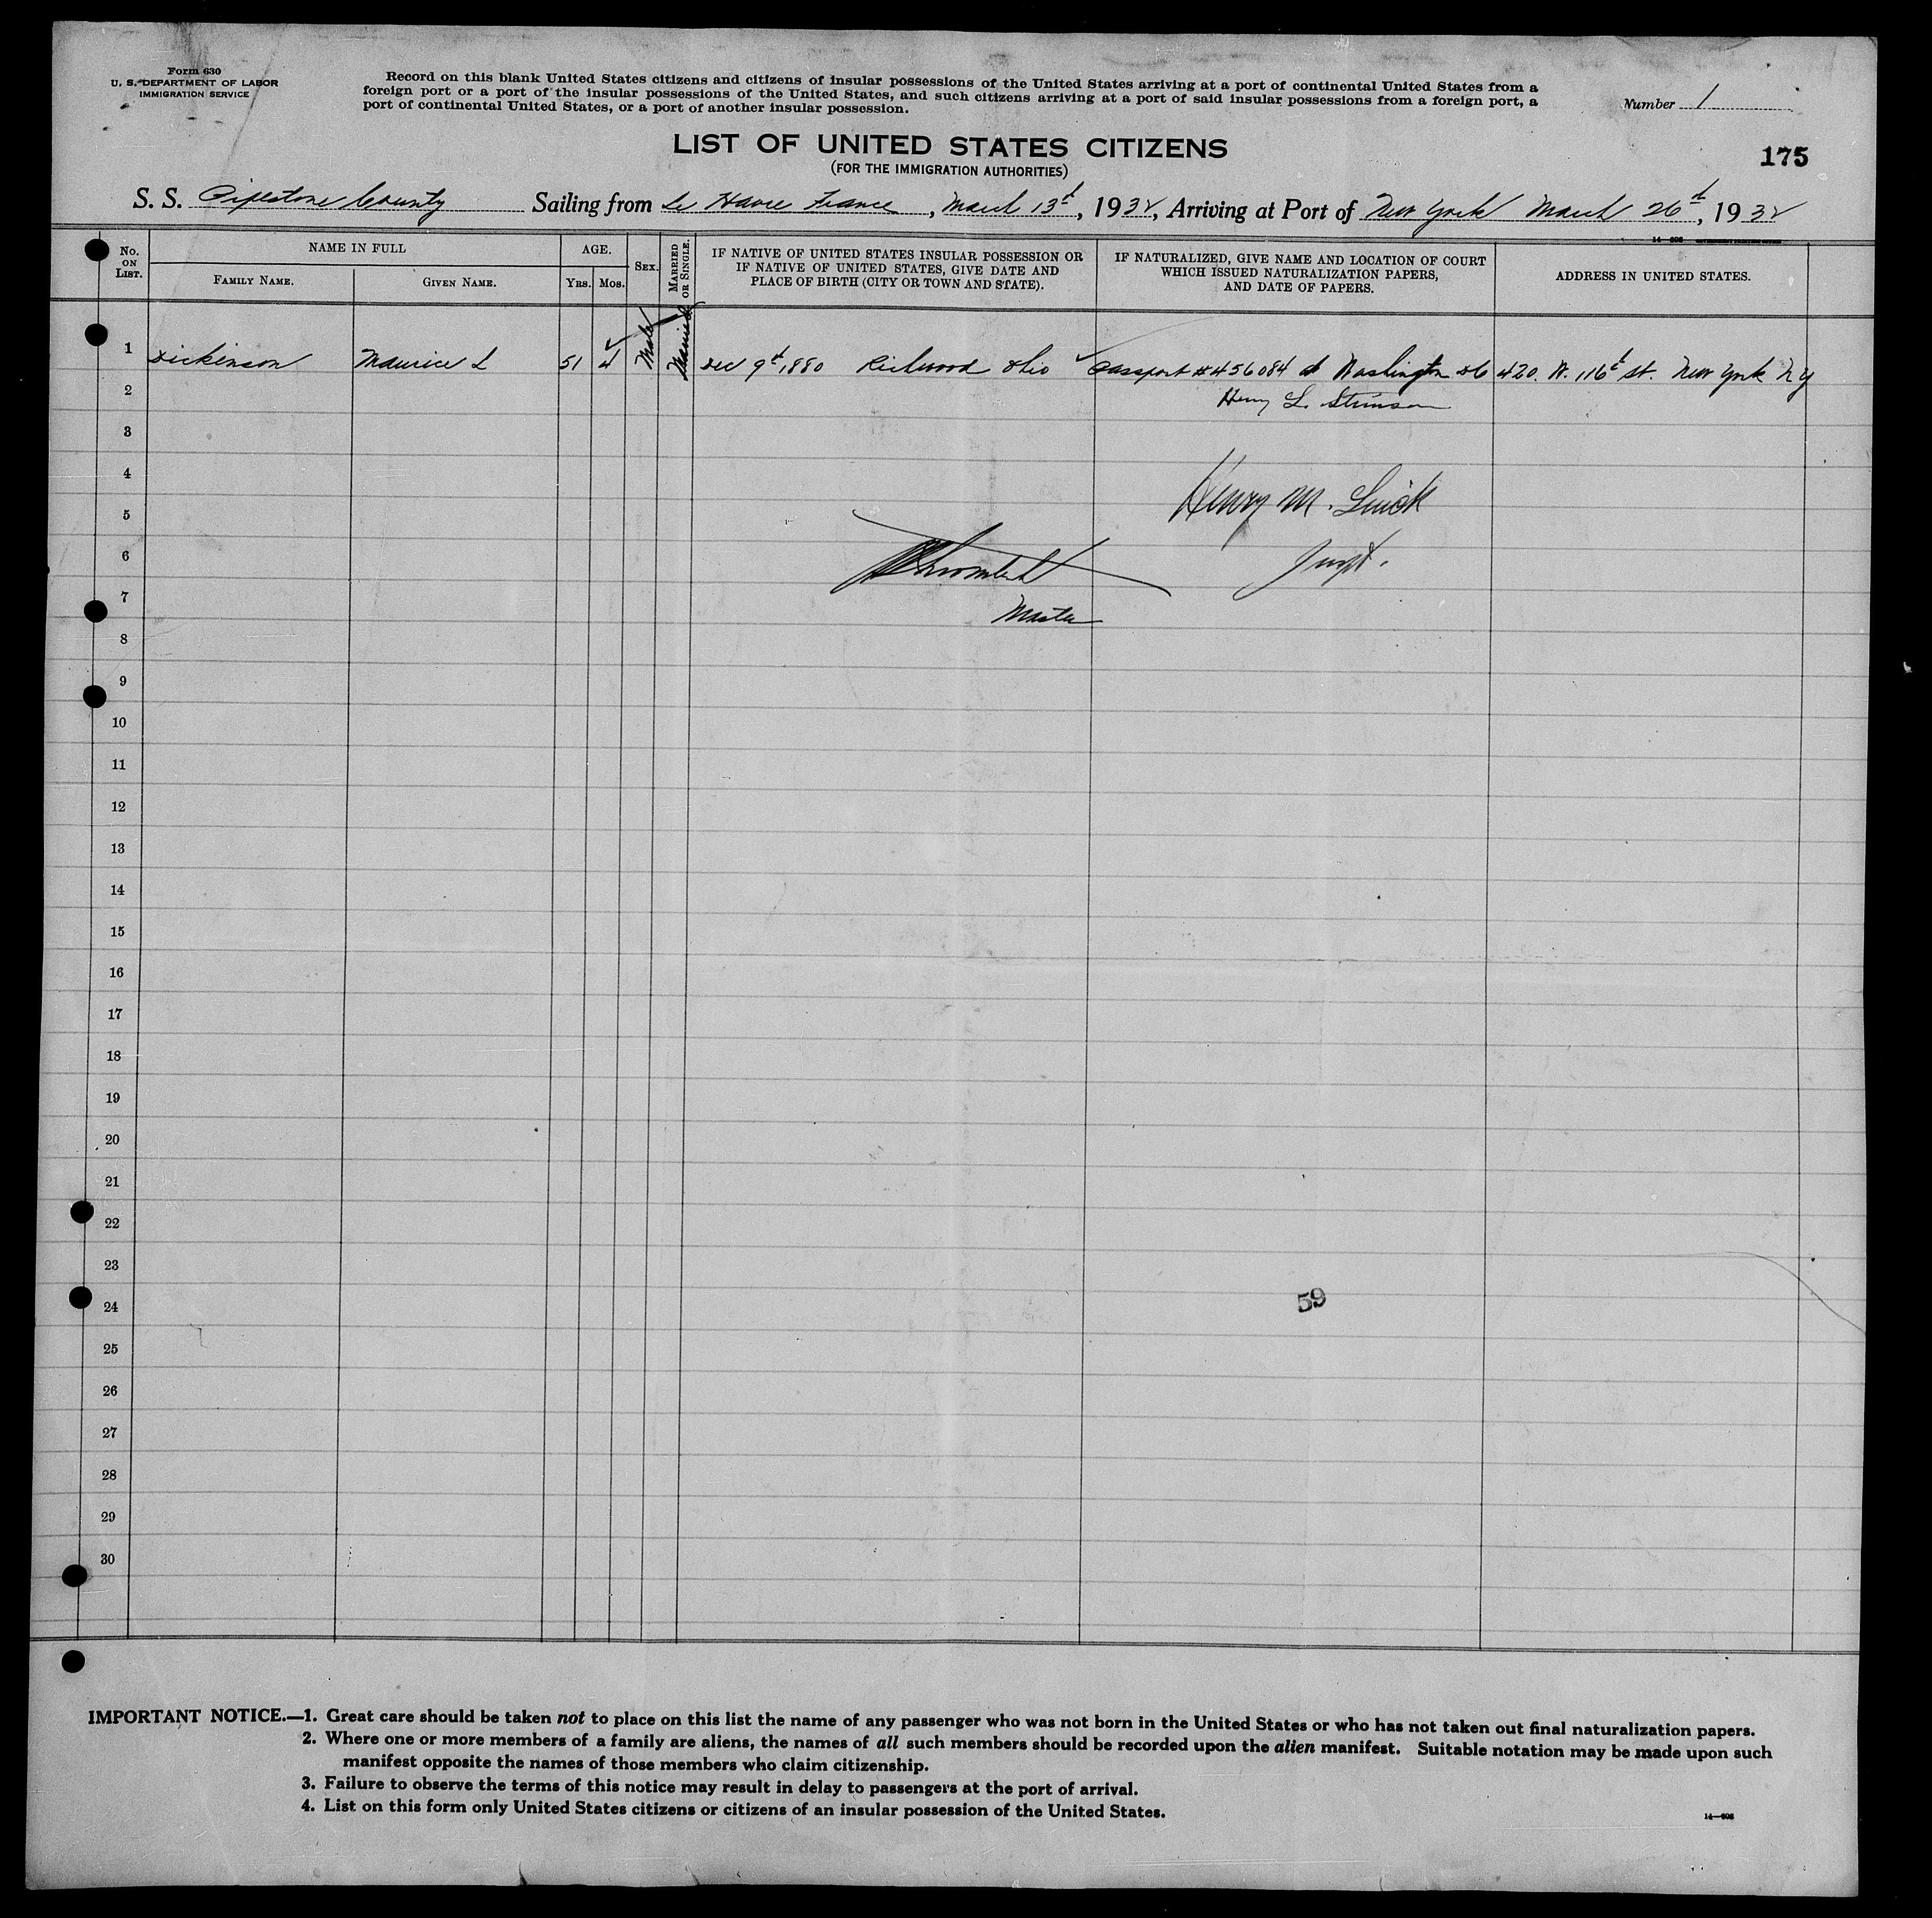 Form 630
U. S. DEPARTMENT OF LABOR
IMMIGRATION SERVICE
Record on this blank United States citizens and citizens of insular possessions of the United States arriving at a port of continental United States from a
foreign port or a port of the insular possessions of the United States, and such citizens arriving at a port of said insular possessions from a foreign port, a
port of continental United States, or a port of another insular possession.
Number 1
LIST OF UNITED STATES CITIZENS
(FOR THE IMMIGRATION AUTHORITIES)
175
S. S. Pipestone County Sailing from Le Havre France, March 13th, 1932, Arriving at Port of New York March 26th, 1932
No. ON LIST.
NAME IN FULL
FAMILY NAME.
GIVEN NAME.
AGE.
YRS. MOS.
SEX.
MARRIED OR SINGLE.
IF NATIVE OF UNITED STATES INSULAR POSSESSION OR
IF NATIVE OF UNITED STATES, GIVE DATE AND
PLACE OF BIRTH (CITY OR TOWN AND STATE).
IF NATURALIZED, GIVE NAME AND LOCATION OF COURT
WHICH ISSUED NATURALIZATION PAPERS,
AND DATE OF PAPERS.
ADDRESS IN UNITED STATES.
1 Dickinson Maurice L 51 4 Male Married Dec 9th 1880 Richwood Ohio Passport #456084 at Washington DC 420. W. 116th St. New York NY
2 Henry L. Stimson
3
4
5 Henry M.
6
7 Master
8
9
10
11
12
13
14
15
16
17
18
19
20
21
22
23
24 59
25
26
27
28
29
30
IMPORTANT NOTICE.—1. Great care should be taken not to place on this list the name of any passenger who was not born in the United States or who has not taken out final naturalization papers.
2. Where one or more members of a family are aliens, the names of all such members should be recorded upon the alien manifest. Suitable notation may be made upon such
manifest opposite the names of those members who claim citizenship.
3. Failure to observe the terms of this notice may result in delay to passengers at the port of arrival.
4. List on this form only United States citizens or citizens of an insular possession of the United States.